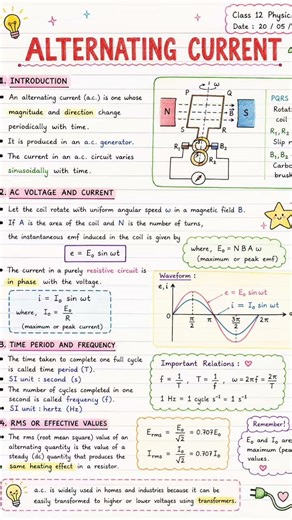 Class 12 Physic
Date : 20 / 05 /
ALTERNATING CURRENT
1. INTRODUCTION
• An alternating current (a.c.) is one whose
magnitude and direction change
periodically with time.
• It is produced in an a.c. generator.
• The current in an a.c. circuit varies
sinusoidally with time.
ω
P
Q
N
S
S
R
R₁
R₂
B₁
B₂
PQRS
Rotati
coil
R₁, R₂
Slip r
B₁, B₂
Carbo
brush
2. AC VOLTAGE AND CURRENT
• Let the coil rotate with uniform angular speed ω in a magnetic field B.
• If A is the area of the coil and N is the number of turns,
the instantaneous emf induced in the coil is given by
e = E₀ sin ωt
where, E₀ = N B A ω
(maximum or peak emf)
• The current in a purely resistive circuit is
in phase with the voltage.
i = I₀ sin ωt
where, I₀ = E₀/R
(maximum or peak current)
Waveform :
e, i
e = E₀ sin ωt
i = I₀ sin ωt
π/2
π
3π/2
2π
3. TIME PERIOD AND FREQUENCY
• The time taken to complete one full cycle
is called time period (T).
• SI unit : second (s)
• The number of cycles completed in one
second is called frequency (f).
• SI unit : hertz (Hz)
Important Relations : ♥
f = 1/T , T = 1/f , ω = 2πf = 2π/T
1 Hz = 1 cycle s⁻¹ = 1 s⁻¹
4. RMS OR EFFECTIVE VALUES
• The rms (root mean square) value of an
alternating quantity is the value of a
steady (dc) quantity that produces the
same heating effect in a resistor.
Erms = E₀/√2 = 0.707 E₀
Irms = I₀/√2 = 0.707 I₀
Remember!
E₀ and I₀ are
maximum (pea
values.
a.c. is widely used in homes and industries because it can be
easily transformed to higher or lower voltages using transformers.